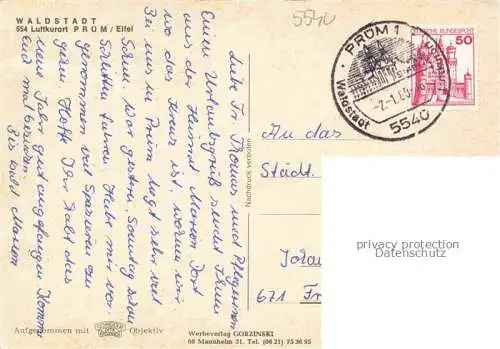 WALDSTADT
554 Luftkurort PRÜM / Eifel
5540
PRÜM 1
Luftkurort
Waldstadt
-2.-1.80-
5540
DEUTSCHE BUNDESPOST
50
Liebe Fr. Thomas und Pflegerinnen
Einen Urlaubsgruß sendet Ihnen
aus der Heimat Marion Dort
wo das Kreuz ist, wohnen wir.
Bei uns in Prüm liegt sehr viel
Schnee. War gestern, Sonntag schon
Schlitten fahren. Habe mir vor-
genommen viel Spazieren zu
gehen. Hoffe Ihr habt das
neue Jahr gut angefangen
Bis bald Marion
Nachdruck verboten
An das
Städt.
671 Fr
privacy protection
Datenschutz
Aufgenommen mit
Objektiv
Werbeverlag GORZINSKI
68 Mannheim 31, Tel. (06 21) 75 36 95